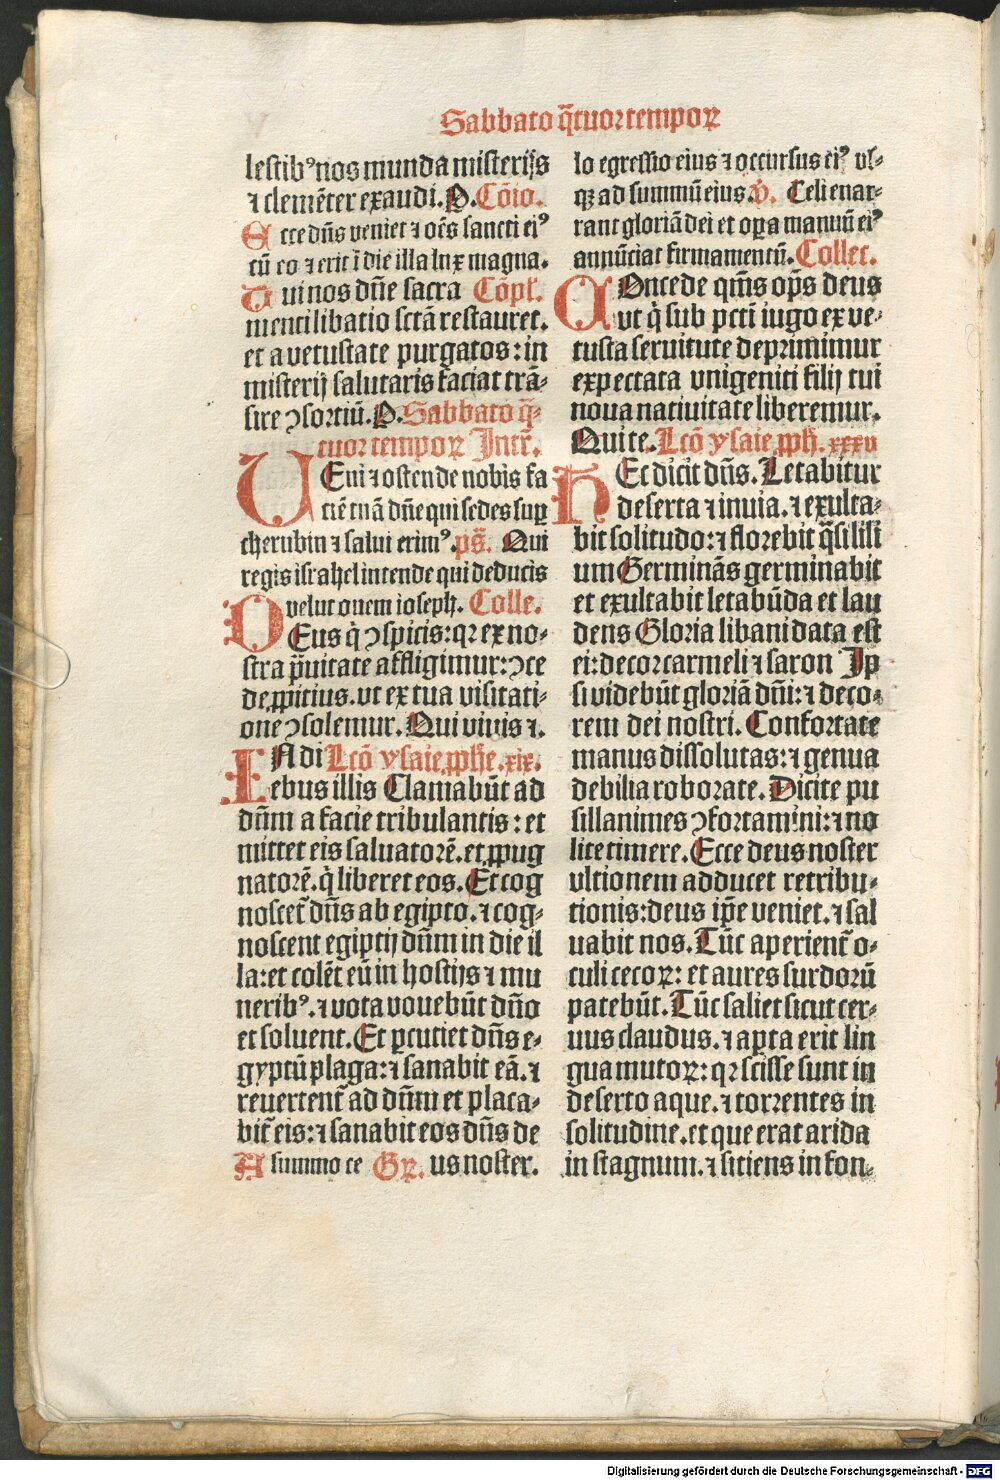 Sabbato q̃tuor tempoꝝ
lestibꝰ nos munda misterijs
⁊ clemẽter exaudi. P. Cõio.
Ecce dñs veniet ⁊ oẽs sancti eiꝰ
cũ eo ⁊ erit ĩ die illa lux magna.
Tui nos dñe sacra Cõpl.
menti libatio sctã restauret.
et a vetustate purgatos: in
misterij salutaris faciat trã-
sire ꝯsortiũ. P. Sabbato q̃-
tuor tempoꝝ Intr̃.
VEni ⁊ ostende nobis fa
ciẽ tuã dñe qui sedes suꝑ
cherubin ⁊ salui erimꝰ. ps̃. Qui
regis israhel intende qui deducis
velut ouem ioseph. Colle.
DEus q̇ ꝯspicis: qꝛ ex no-
stra p̃uitate affligimur: ꝯce
de ꝓpitius. vt ex tua visitati-
one ꝯsolemur. Qui viuis ⁊.
IN di Lcõ ysaie ꝓphe. xix.
ebus illis Clamabũt ad
dñm a facie tribulantis: et
mittet eis saluatorẽ. et ꝓpug
natorẽ. q̇ liberet eos. Et cog
noscet᷑ dñs ab egipto. ⁊ cog-
noscent egiptij dñm in die il
la: et colẽt eũ in hostijs ⁊ mu
neribꝰ. ⁊ vota vouebũt dño
et soluent. Et ꝑcutiet dñs e-
gyptũ plaga: ⁊ sanabit eã. ⁊
reuertent᷑ ad dñm et placa-
bit᷑ eis: ⁊ sanabit eos dñs de
A summo ce Gꝝ. us noster.
lo egressio eius ⁊ occursus eiꝰ vs-
qꝫ ad summũ eius. v̇. Celi enar-
rant gloriã dei et oꝑa manuũ eiꝰ
annũciat firmamentũ. Collec.
COncede qm̃s op̃s deus
vt q̇ sub pcti iugo ex ve-
tusta seruitute deprimimur
expectata vnigeniti filij tui
noua natiuitate liberemur.
Qui te. Lcõ ysaie ꝓph. xxxv
HEc dicit dñs. Letabitur
deserta ⁊ inuia. ⁊ exulta-
bit solitudo: ⁊ florebit q̃si lili
um Germinãs germinabit
et exultabit letabũda et lau
dens Gloria libani data est
ei: decor carmeli ⁊ saron Ip
si videbũt gloriã dñi: ⁊ deco-
rem dei nostri. Confortate
manus dissolutas: ⁊ genua
debilia roborate. Dicite pu
sillanimes ꝯfortamini: ⁊ no
lite timere. Ecce deus noster
vltionem adducet retribu-
tionis: deus ip̃e veniet. ⁊ sal
uabit nos. Tũc aperient᷑ o-
culi cecoꝝ: et aures surdorũ
patebũt. Tũc saliet sicut cer-
uus claudus. ⁊ aꝑta erit lin
gua mutoꝝ: qꝛ scisse sunt in
deserto aque. ⁊ torrentes in
solitudine. et que erat arida
in stagnum. ⁊ sitiens in fon-
Digitalisierung gefördert durch die Deutsche Forschungsgemeinschaft - DFG